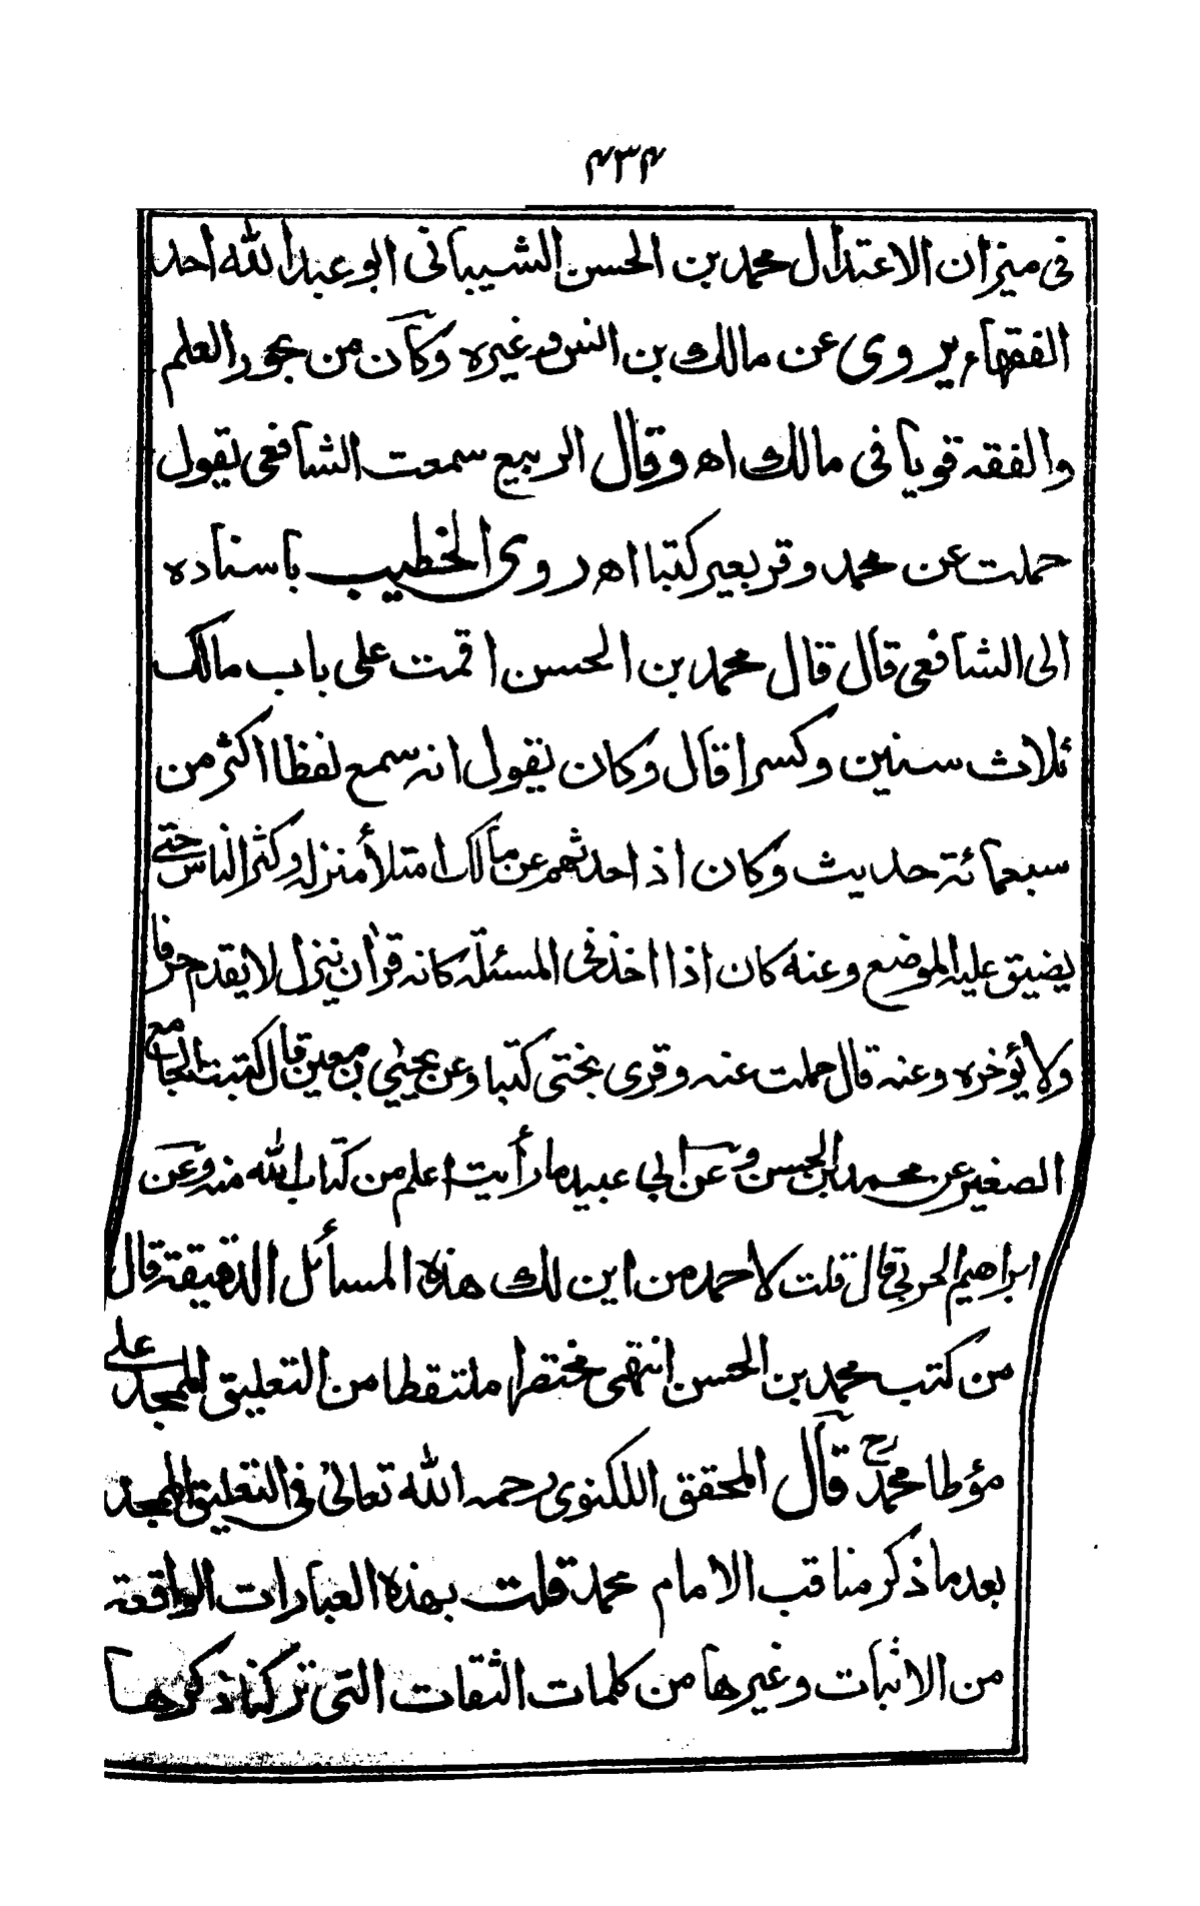 ۴۳۴
فى ميزان الاعتدال محمد بن الحسن الشيبانى ابو عبد الله احد
الفقهاء يروى عن مالك بن انس وغيره وكان من بحور العلم
والفقه قويا فى مالك اه وقال الربيع سمعت الشافعى يقول
حملت عن محمد وقر بعير كتبا اه روى الخطيب باسناده
الى الشافعى قال قال محمد بن الحسن اقمت على باب مالك
ثلاث سنين وكسرا قال وكان يقول انه سمع لفظا اكثر من
سبعمائة حديث وكان اذا حدثهم عن مالك امتلأ منزله وكثر الناس حتى
يضيق عليه الموضع وعنه كان اذا اخذ فى المسئلة كانه قرآن ينزل لا يقدم حرفا
ولا يؤخره وعنه قال حملت عنه وقرى بختى كتبا وعن يحيى بن معين قال كتبت الجامع
الصغير عن محمد بن الحسن وعن ابي عبيد ما رأيت اعلم من كتاب الله منه وعن
ابراهيم الحربي قال قلت لاحمد من اين لك هذه المسائل الدقيقة قال
من كتب محمد بن الحسن انتهى مختصرا ملتقطا من التعليق الممجد على
مؤطا محمدؒ قال المحقق اللكنوى رحمه الله تعالى فى التعليق الممجد
بعد ما ذكر مناقب الامام محمد قلت بهذه العبارات الواقعة
من الاثبات وغيرها من كلمات الثقات التى تركنا ذكرها